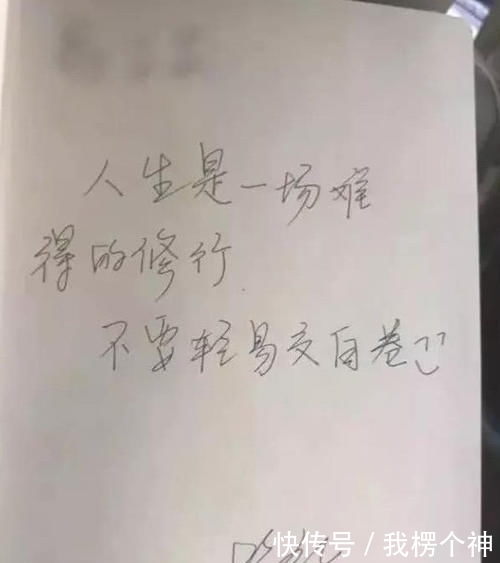 人生是一场难
得的修行.
不要轻易交白卷
快传号/我楞个神